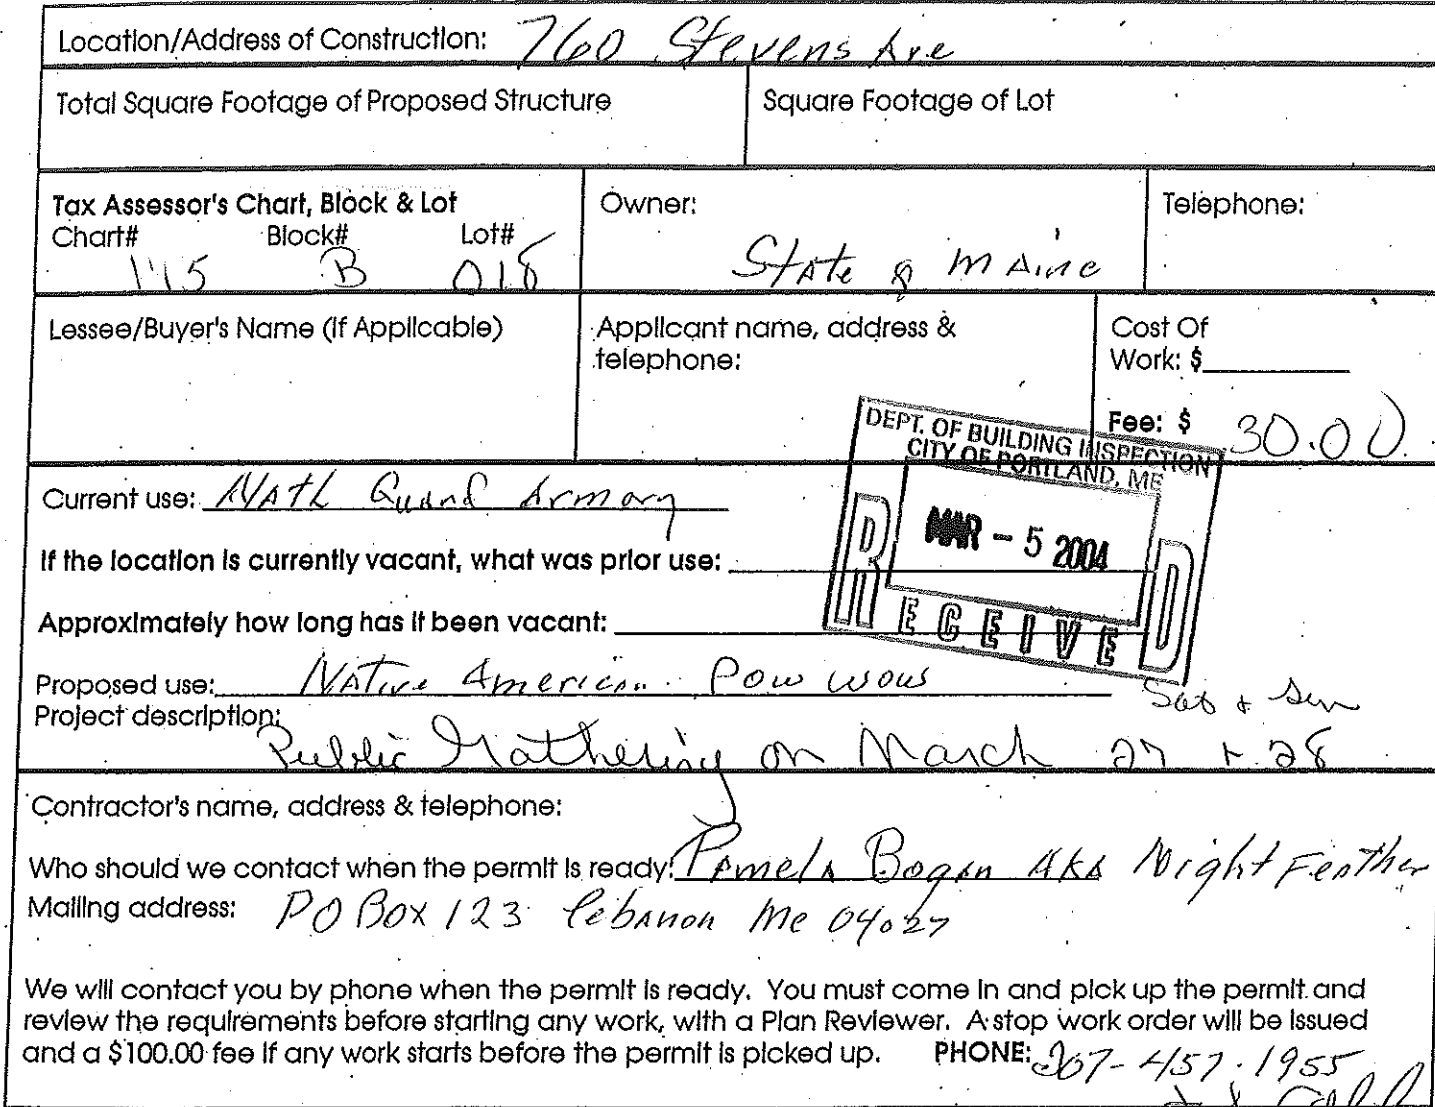 Location/Address of Construction: 760 Stevens Ave
Total Square Footage of Proposed Structure
Square Footage of Lot
Tax Assessor's Chart, Block & Lot
Chart# Block# Lot#
115 B 018
Owner:
State of Maine
Telephone:
Lessee/Buyer's Name (If Applicable)
Applicant name, address &
telephone:
Cost Of
Work: $
Fee: $ 30.00
DEPT. OF BUILDING INSPECTION
CITY OF PORTLAND, ME
MAR - 5 2004
RECEIVED
Current use: Natl Guard Armory
If the location is currently vacant, what was prior use:
Approximately how long has it been vacant:
Proposed use: Native American Pow wow
Sat & Sun
Project description:
Public Gathering on March 27 + 28
Contractor's name, address & telephone:
Who should we contact when the permit is ready: Pamela Bogan AKA Night Feather
Mailing address: PO Box 123 Lebanon Me 04027
We will contact you by phone when the permit is ready. You must come in and pick up the permit and
review the requirements before starting any work, with a Plan Reviewer. A stop work order will be issued
and a $100.00 fee if any work starts before the permit is picked up. PHONE: 207-457-1955